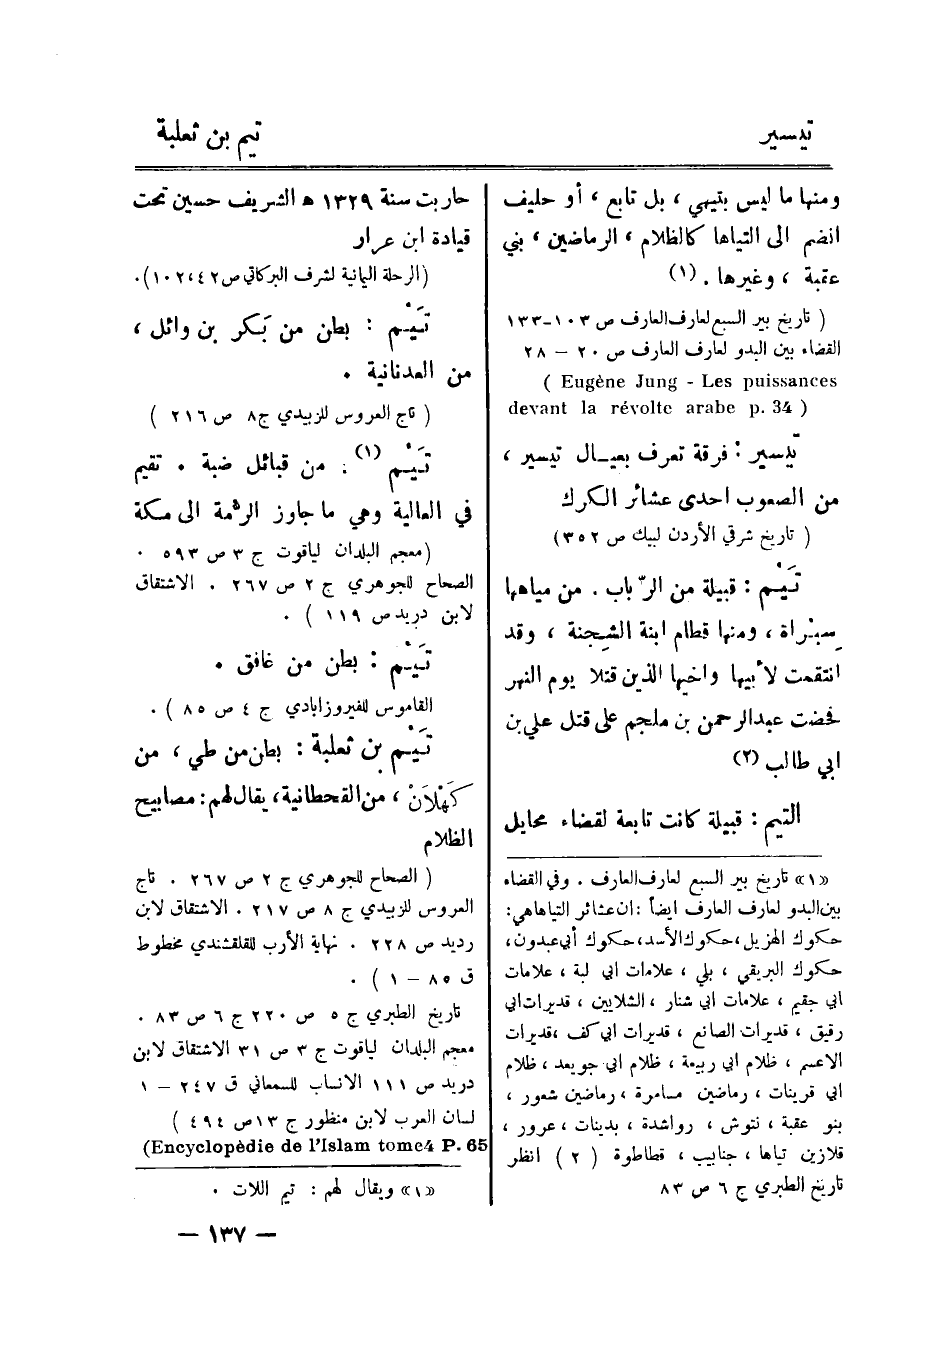 تيسير
تيم بن ثعلبة
ومنها ما ليس بتيهي ، بل تابع ، أو حليف
انضم الى التياها كالظلام ، الرماضين ، بني
عقبة ، وغيرها . (١)
( تاريخ بير السبع لعارف العارف ص ١٠٣-١٣٣
القضاء بين البدو لعارف العارف ص ٢٠ – ٢٨
( Eugène Jung - Les puissances
devant la révolte arabe p. 34 )
تَيسير : فرقة تعرف بعيــال تيسير ،
من الصعوب احدى عشائر الكرك
( تاريخ شرقي الأردن لبيك ص ٣٥٢)
تَيْم : قبيلة من الرّباب . من مياهها
سِبْراة ، ومنها قطام ابنة الشِجنة ، وقد
انتقمت لأبيها واخيها الذين قتلا يوم النهر
فحضت عبدالرحمن بن ملجم على قتل علي بن
ابي طالب (٢)
التيم : قبيلة كانت تابعة لقضاء محايل
«١» تاريخ بير السبع لعارف العارف . وفي القضاء
بين البدو لعارف العارف ايضاً : ان عشائر التياها هي:
حكوك الهزيل ، حكوك الأسد ، حكوك أبي عبدون،
حكوك البريقي ، بلي ، علامات ابي لبة ، علامات
ابي جقيم ، علامات ابي شنار ، الشلايين ، قديرات ابي
رقيق ، قديرات الصانع ، قديرات ابي كف ، قديرات
الاعسم ، ظلام ابي ربيعة ، ظلام ابي جويعد ، ظلام
ابي قرينات ، رماضين مسامرة ، رماضين شعور ،
بنو عقبة ، نتوش ، رواشدة ، بدينات ، عرور ،
قلازين تياها ، جنابيب ، قطاطوة ( ٢ ) انظر
تاريخ الطبري ج ٦ ص ٨٣
حاربت سنة ١٣٢٩ ه الشريف حسين تحت
قيادة ابن عرار
(الرحلة اليمانية لشرف البركاتي ص ٤٢ ، ١٠٢).
تَيْم : بطن من بَكر بن وائل ،
من العدنانية .
( تاج العروس للزبيدي ج٨ ص ٢١٦ )
تَيْم (١) : من قبائل ضبة . تقيم
في العالية وهي ما جاوز الرمة الى مكة
(معجم البلدان لياقوت ج ٣ ص ٥٩٣ .
الصحاح للجوهري ج ٢ ص ٢٦٧ . الاشتقاق
لابن دريد ص ١١٩ ) .
تَيْم : بطن من غافق .
القاموس للفيروزابادي ج ٤ ص ٨٥ ) .
تَيْم بن ثعلبة : بطن من طي ، من
كَهْلاَنْ ، من القحطانية ، يقال لهم : مصابيح
الظلام
( الصحاح للجوهري ج ٢ ص ٢٦٧ . تاج
العروس للزبيدي ج ٨ ص ٢١٧ . الاشتقاق لابن
رديد ص ٢٢٨ . نهاية الأرب للقلقشندي مخطوط
ق ٨٥ – ١ ) .
تاريخ الطبري ج ٥ ص ٢٢٠ ج ٦ ص ٨٣ .
معجم البلدان لياقوت ج ٣ ص ٣١ الاشتقاق لابن
دريد ص ١١١ الانساب للسمعاني ق ٢٤٧ – ١
لسان العرب لابن منظور ج ١٣ ص ٤٩٤ )
(Encyclopèdie de l'Islam tome4 P. 65
«١» ويقال لهم : تيم اللات .
– ١٣٧ –